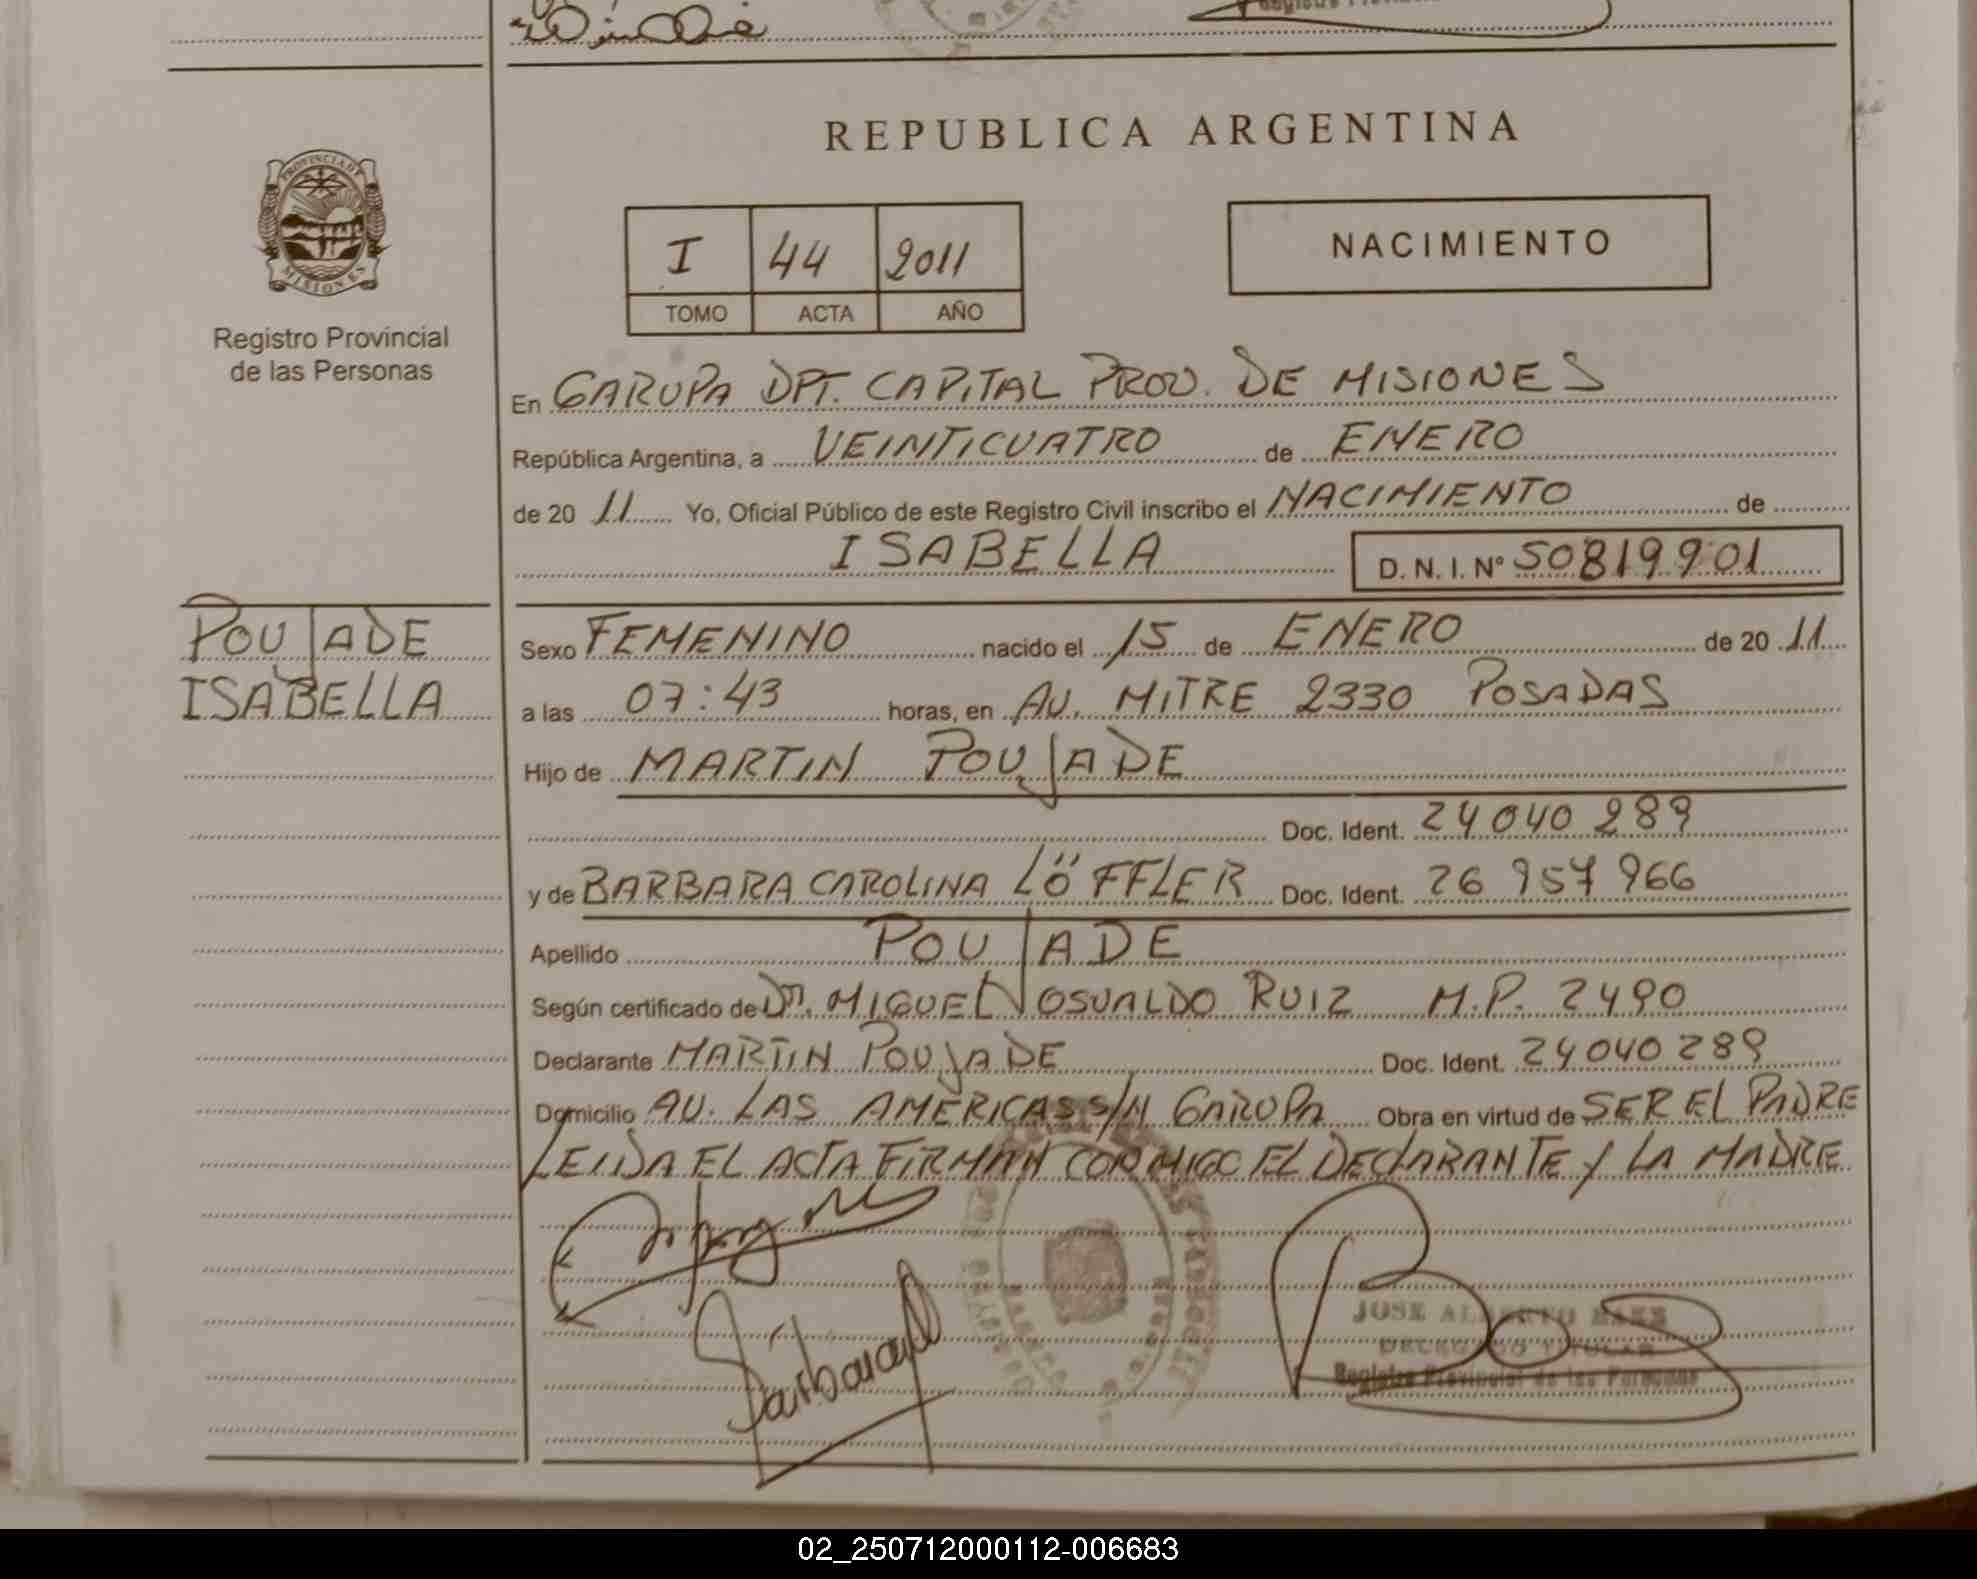 REPUBLICA ARGENTINA
PROVINCIA DE MISIONES
Registro Provincial
de las Personas
I 44 2011
TOMO ACTA AÑO
NACIMIENTO
En GARUPA DPT. CAPITAL PROV. DE MISIONES
República Argentina, a VEINTICUATRO de ENERO
de 20 11 Yo, Oficial Público de este Registro Civil inscribo el NACIMIENTO de
ISABELLA D.N.I. N° 50819901
POUJADE
ISABELLA
Sexo FEMENINO nacido el 15 de ENERO de 20 11
a las 07:43 horas, en AV. MITRE 2330 POSADAS
Hijo de MARTIN POUJADE
Doc. Ident. 24040289
y de BARBARA CAROLINA LÖFFLER Doc. Ident. 26957966
Apellido POUJADE
Según certificado de Dr. MIGUEL OSVALDO RUIZ M.P. 2490
Declarante MARTIN POUJADE Doc. Ident. 24040289
Domicilio AV. LAS AMERICAS S/N GARUPA Obra en virtud de SER EL PADRE
LEIDA EL ACTA FIRMAN CONMIGO EL DECLARANTE Y LA MADRE
JOSE ALBERTO
DELEGADO TITULAR
Registro Provincial de las Personas
02_250712000112-006683